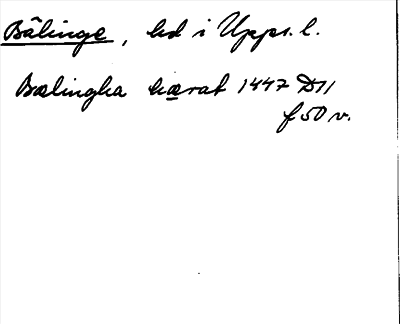 Bälinge, hd i Upps. l.
Bælingha hærat 1447 D11
f 50 v.